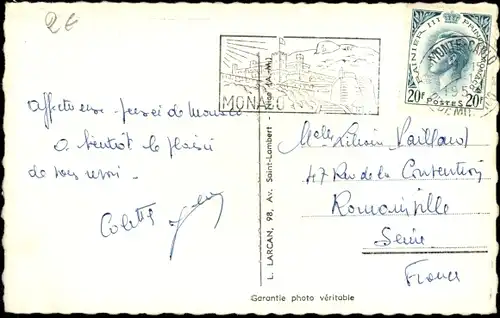 2€
RAINIER III PRINCE DE MONACO
MONTE-CARLO
195
20F POSTES 20F
MONACO
Affectueuse pensée de Monaco
A bientôt le plaisir
de vous revoir.
Colette
Melle Vaillard
47 Rue de la Convention
Romainville
Seine
France
L. LARCAN, 98, Av. Saint-Lambert - Nice (A.-M.)
Garantie photo véritable